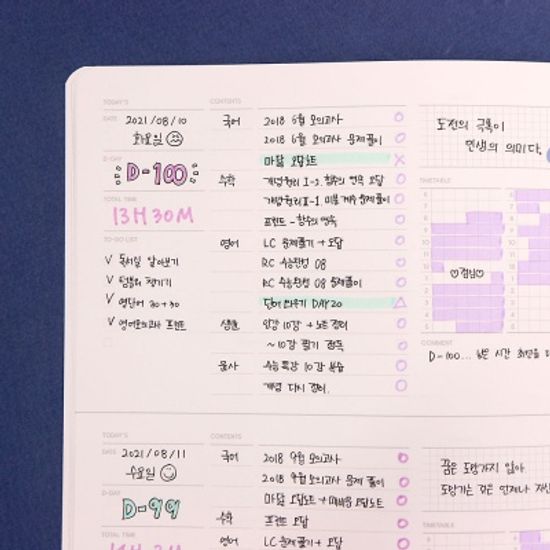 TODAY'S
DATE 2021/08/10
화요일
D-DAY
D-100
TOTAL TIME
13H 30M
TO-DO LIST
√ 독서실 알아보기
√ 텀블러 챙기기
√ 영단어 30+30
√ 영어모의고사 프린트
CONTENTS
국어 2018 6월 모의고사
2018 6월 모의고사 문제풀이
마닳 오답노트
수학
프린트 - 함수의 연속
영어 LC 문제풀기 + 오답
RC 수능완성 08
RC 수능완성 08 문제풀이
단어 외우기 DAY20
생물 인강 10강 + 노트 정리
~10강 필기 정독
수능특강 10강 복습
개념 다시 정리.
도전의 극복이
인생의 의미다.
TIMETABLE
6
7
8
9
10
11
12
1
2
3
4
5
♡점심♡
COMMENT
D-100... 남은 시간 최선을
TODAY'S
DATE 2021/08/11
수요일
D-DAY
D-99
TOTAL TIME
CONTENTS
국어 2018 9월 모의고사
2018 9월 모의고사 문제풀이
수학 프린트 오답
영어 LC 문제풀기 + 오답
꿈은 도망가지 않아
도망가는 것은 언제나
TIMETABLE